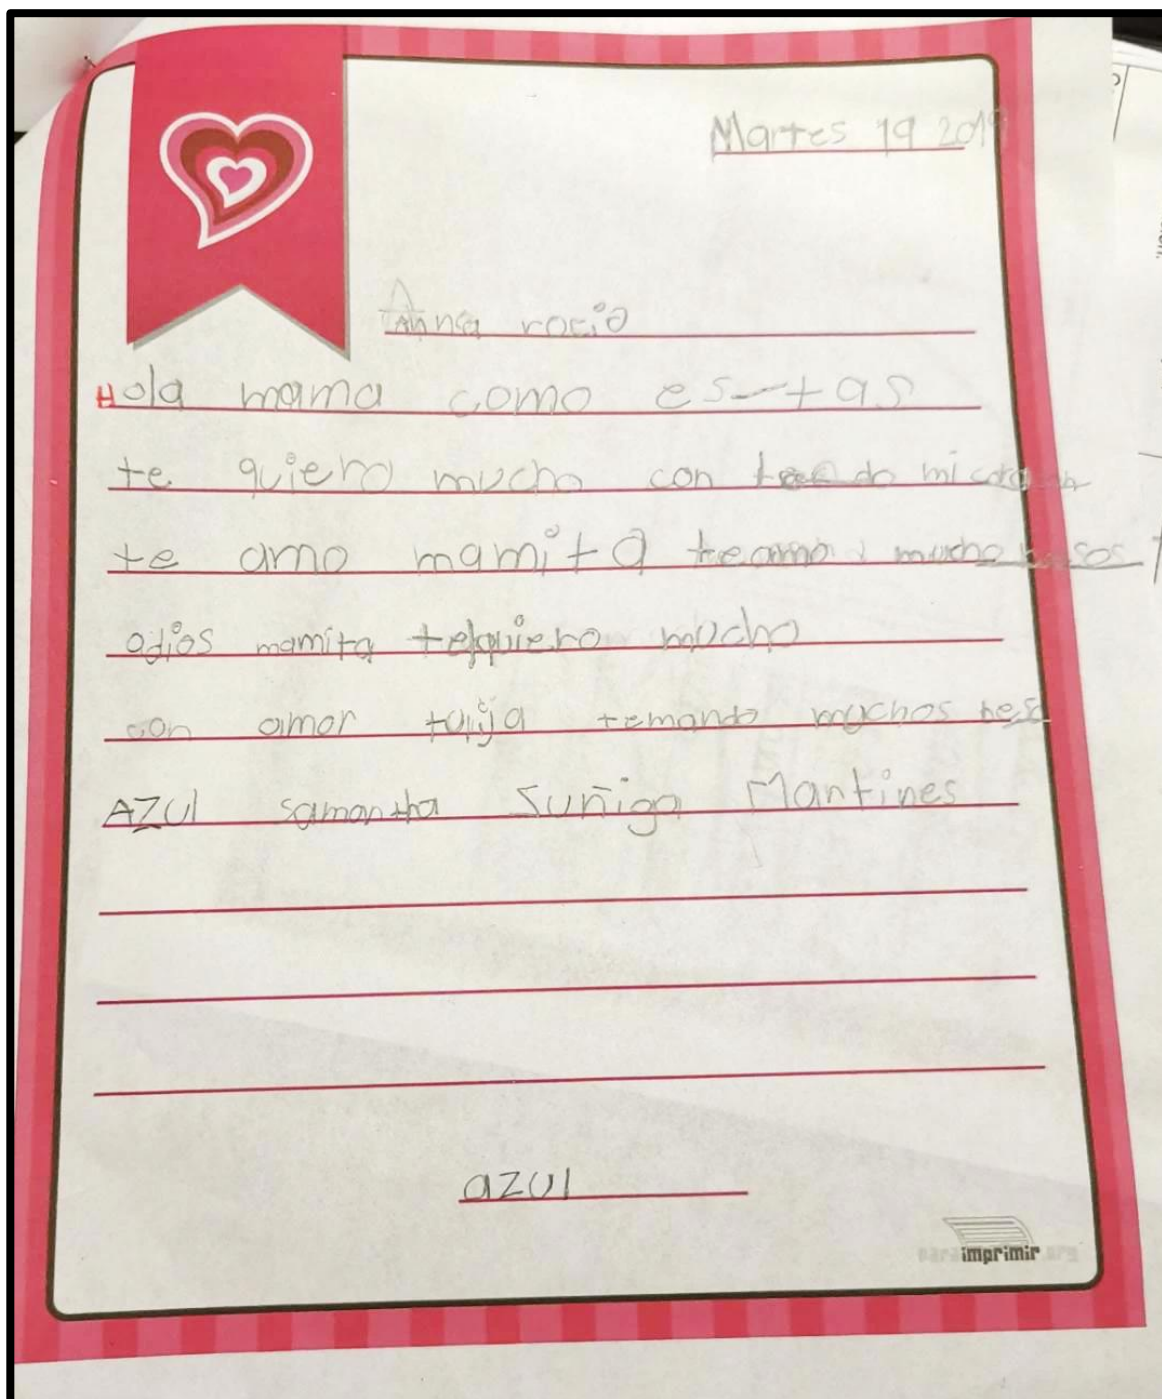 Martes 19 2019
Anna rocio
Hola mama como es-tas
te quiero mucho con do mi
te amo mamita te amo mucho
adios mamita te quiero mucho
con amor tuija temando muchos beso
AZUl samantha Suñiga Mantines
azul
imprimir